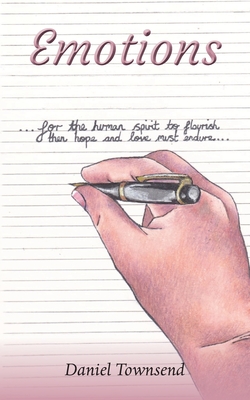 Emotions
...for the human spirit to flourish
then hope and love must endure....
Daniel Townsend